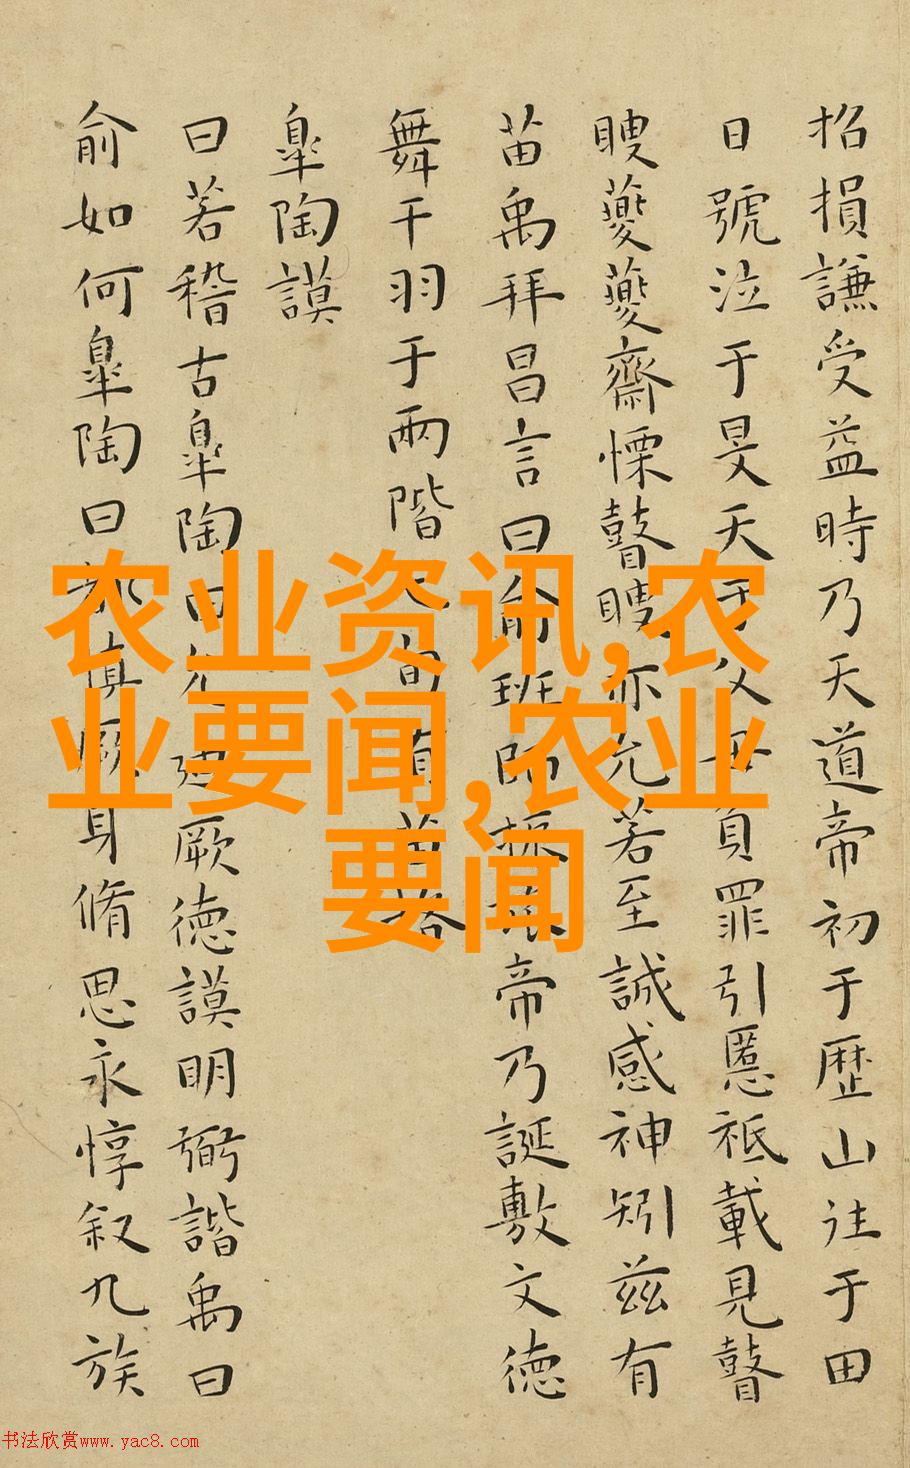 招損謙受益時乃天道帝初于歴山往于田
日號泣于旻天于父母負罪引慝祗載見瞽
瞍夔夔齋慄瞽瞍亦允若至誠感神矧兹有
苗禹拜昌言曰俞班師振旅帝乃誕敷文徳
舞干羽于兩階七旬有苗格
皋陶謨
曰若稽古皋陶曰允迪厥徳謨明弼諧禹曰
俞如何皋陶曰都慎厥身脩思永惇叙九族
农业资讯,农
业要闻,农业
要闻
书法欣赏www.yac8.com